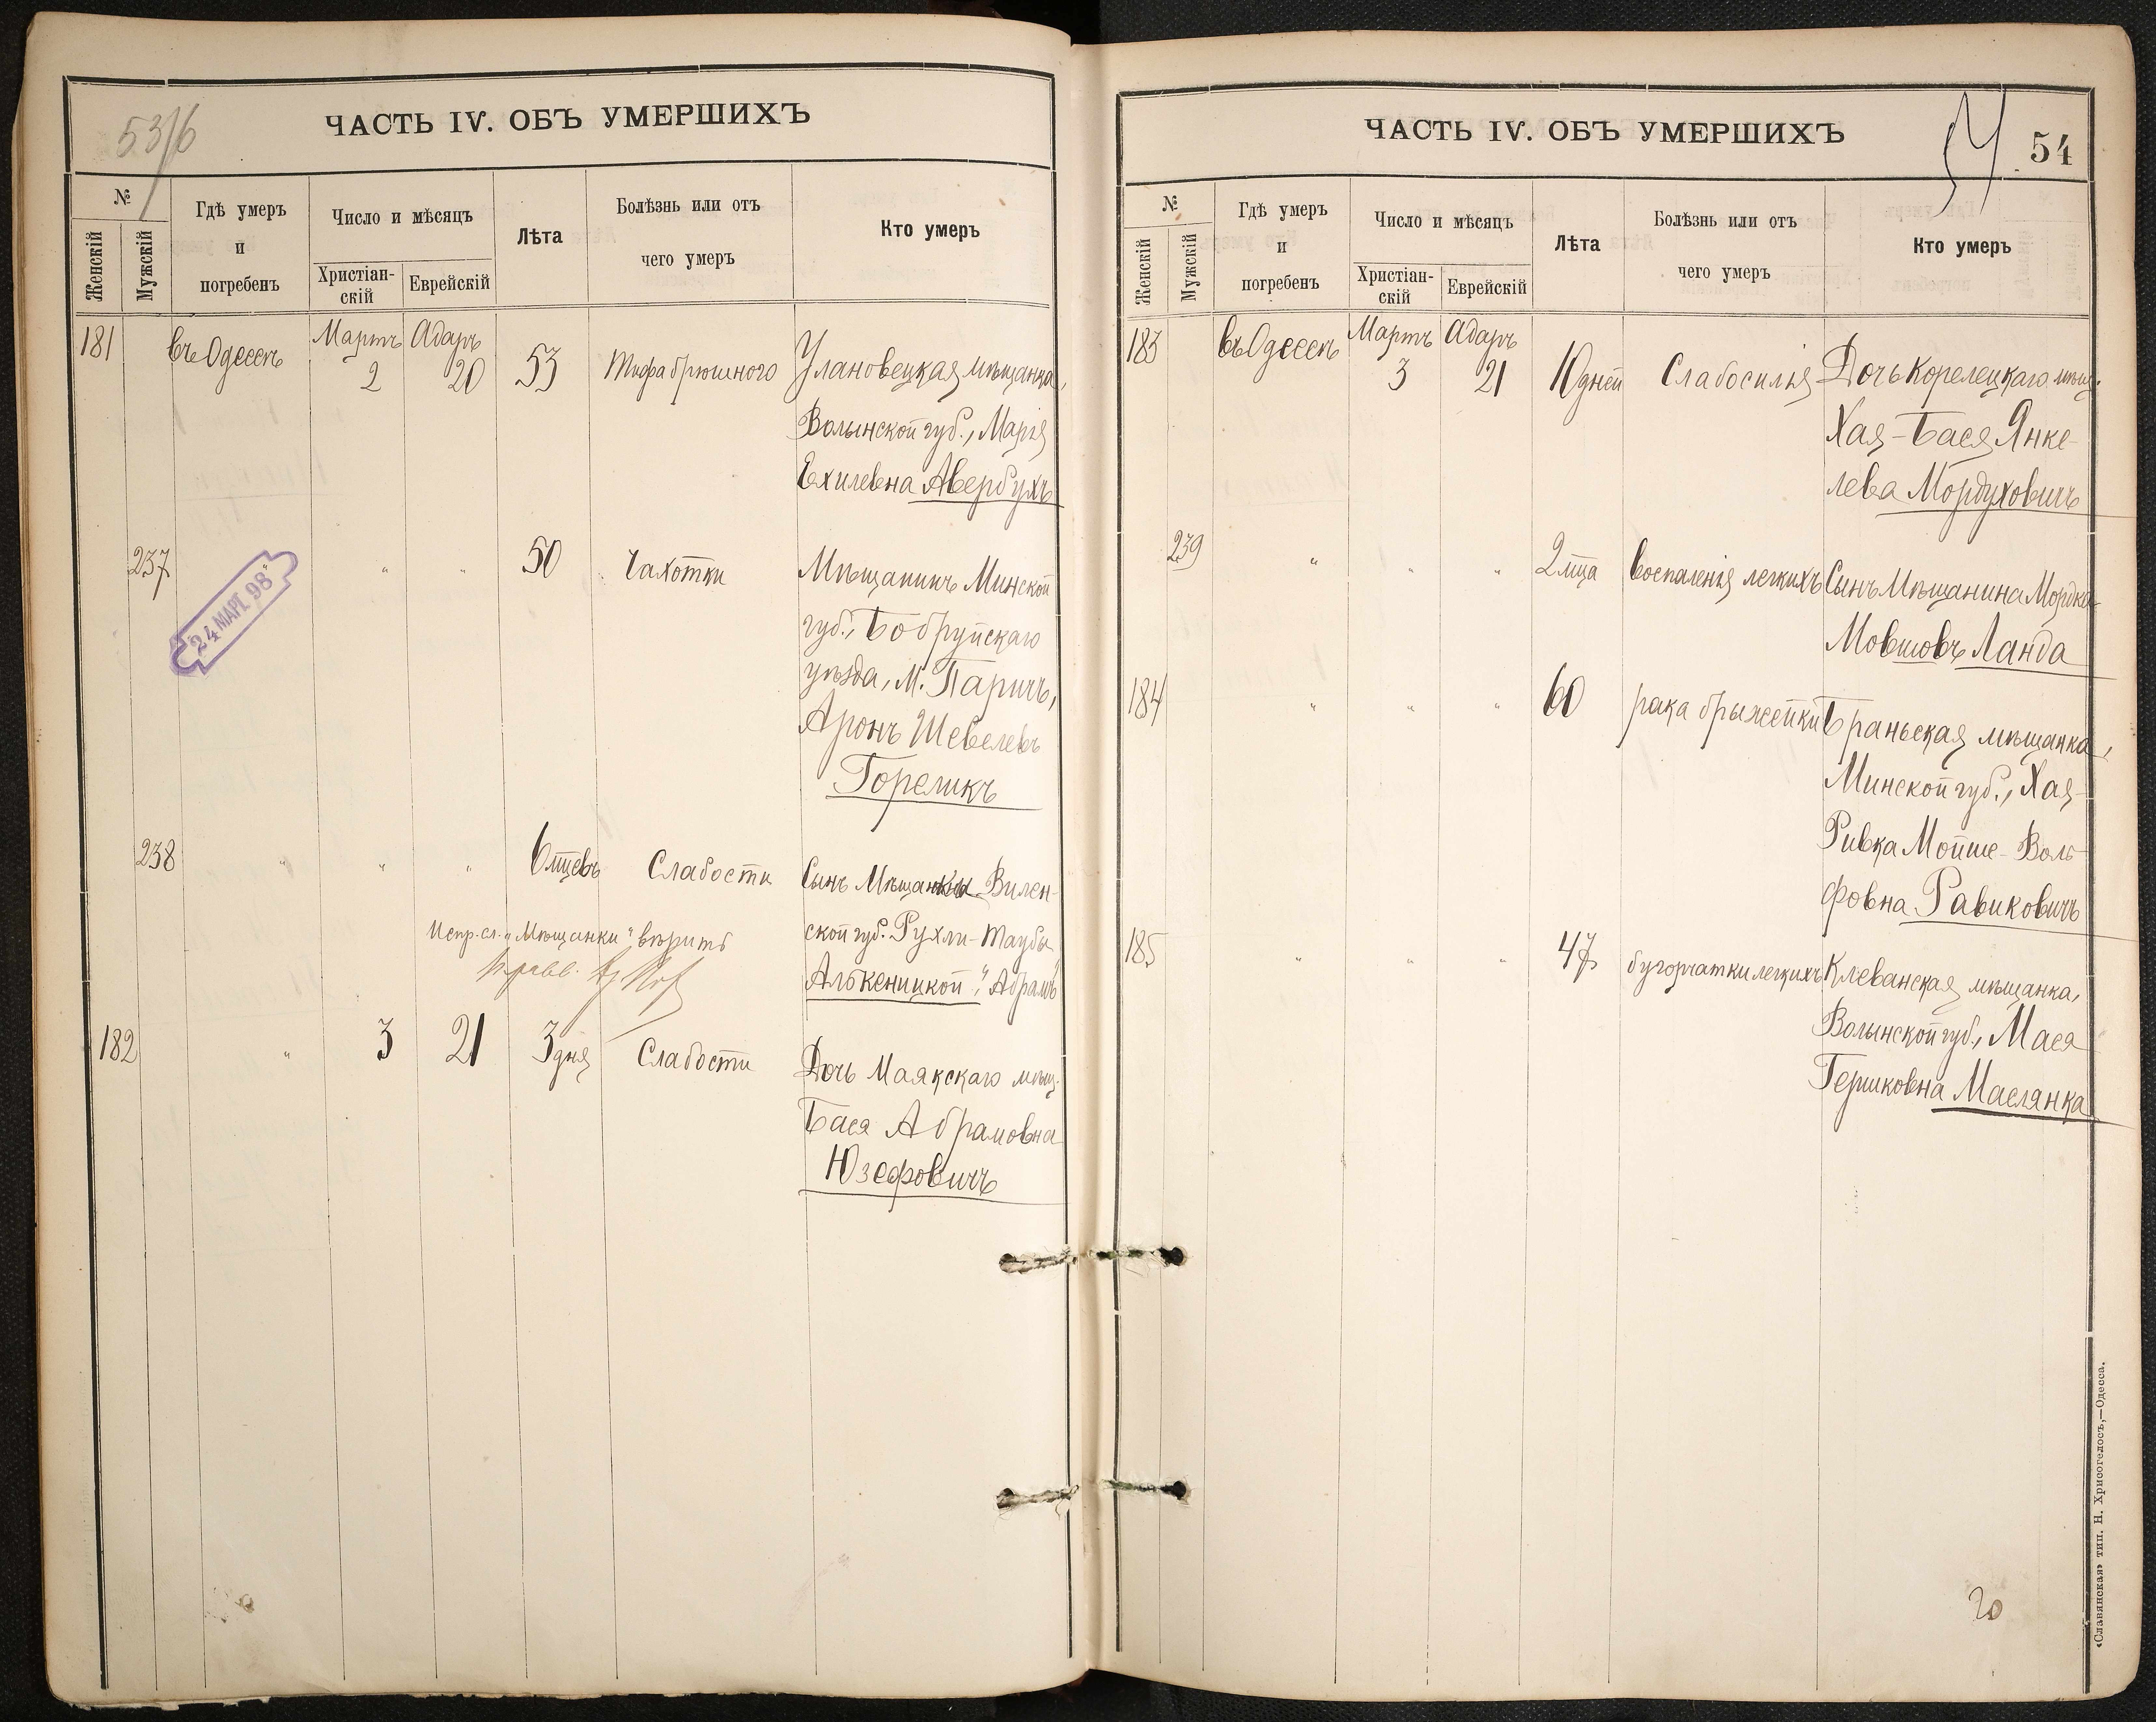 53/б
ЧАСТЬ IV. ОБЪ УМЕРШИХЪ
№
Женскій
Мужскій
Гдѣ умеръ
и
погребенъ
Число и мѣсяцъ
Христіан-
скій
Еврейскій
Лѣта
Болѣзнь или отъ
чего умеръ
Кто умеръ
181 въ Одессѣ Мартъ 2 Адаръ 20 53 Тифа брюшного Улановецкая мѣщанка,
Волынской губ., Марія
Ехилевна Авербухъ
237 " " 50 Чахотки Мѣщанинъ Минской
губ., Бобруйскаго
уѣзда, м. Паричъ,
Аронъ Шевелевъ
Гореликъ
24 МАРТ. 98
238 " " " 6 мцевъ Слабости Сынъ Мѣщанки Вилен-
ской губ. Рухли-Таубы
Алькеницкой, "Абрамъ"
Испр. сл. "Мѣщанки" вѣрить
182 " 3 21 3 дня Слабости Дочь Маякскаго мѣщ.
Бася Абрамовна
Юзефовичъ
ЧАСТЬ IV. ОБЪ УМЕРШИХЪ
54
54
№
Женскій
Мужскій
Гдѣ умеръ
и
погребенъ
Число и мѣсяцъ
Христіан-
скій
Еврейскій
Лѣта
Болѣзнь или отъ
чего умеръ
Кто умеръ
183 въ Одессѣ Мартъ 3 Адаръ 21 10 дней Слабосилія Дочь Корелецкаго мѣщ.
Хая-Бася Янке-
лева Мордуховичъ
239 " " " 2 мца воспаленія легкихъ Сынъ Мѣщанина Мордко-
Мовшовъ Ланда
184 " " " 60 рака брыжейки Браньская мѣщанка,
Минской губ., Хая-
Ривка Мойше-Воль-
фовна Равиковичъ
185 " " " 47 бугорчатки легкихъ Клеванская мѣщанка,
Волынской губ., Мася
Гершковна Маслянка
20
«Славянская» тип. Н. Хрисогелосъ,—Одесса.